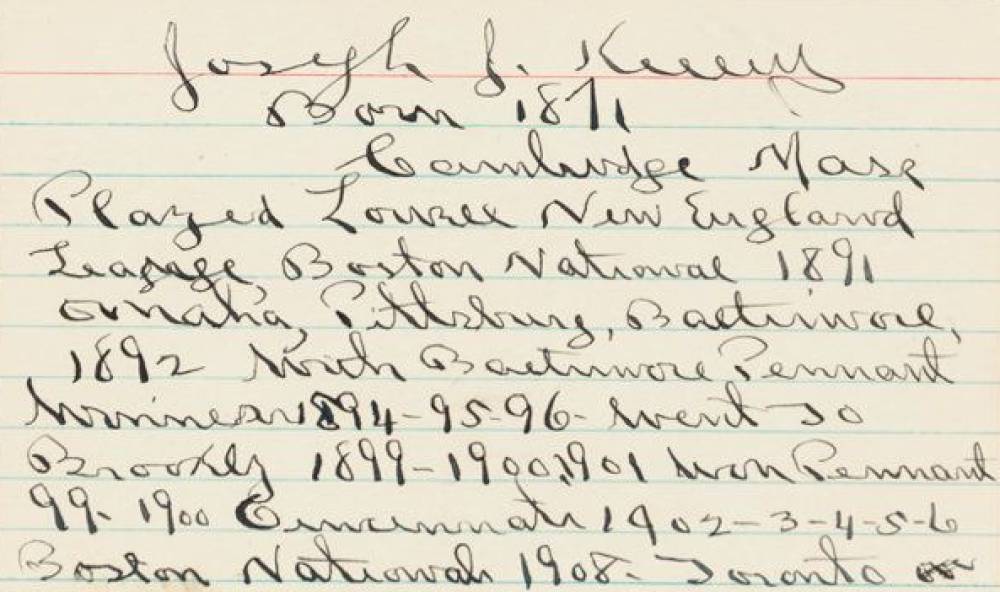 Joseph J. Kelley
Born 1871
Cambridge Mass
Played Lowell New England
League, Boston National 1891
Omaha, Pittsburg, Baltimore,
1892 With Baltimore Pennant
Winners 1894-95-96- went to
Brooklyn 1899-1900, 1901 won Pennant
99- 1900 Cincinnati 1902-3-4-5-6
Boston National 1908- Toronto